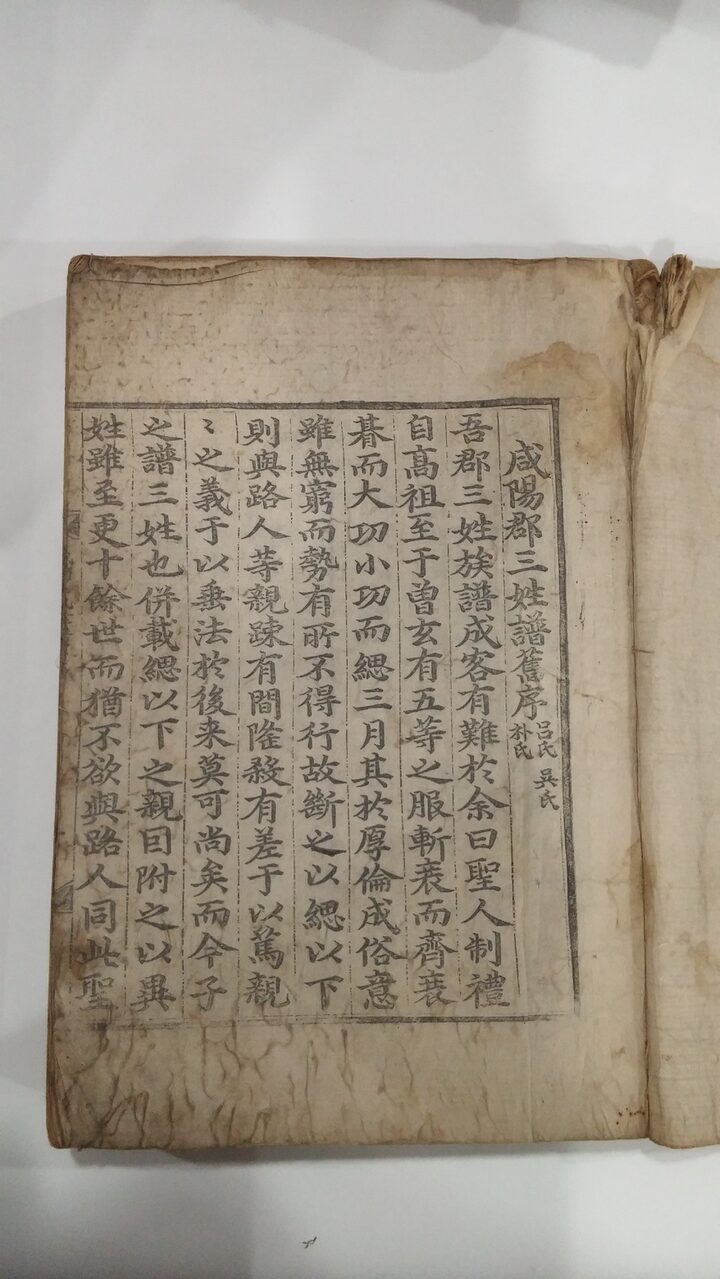 咸陽郡三姓譜舊序 呂氏 吳氏 朴氏
吾郡三姓族譜成客有難於余曰聖人制禮
自髙祖至于曽玄有五等之服斬衰而齊衰
朞而大功小功而緦三月其於厚倫成俗意
雖無窮而勢有所不得行故斷之以緦以下
則與路人等親踈有間隆殺有差于以篤親
〻之義于以垂法於後来莫可尚矣而今子
之譜三姓也併載緦以下之親目附之以異
姓雖至更十餘世而猶不欲與路人同此聖